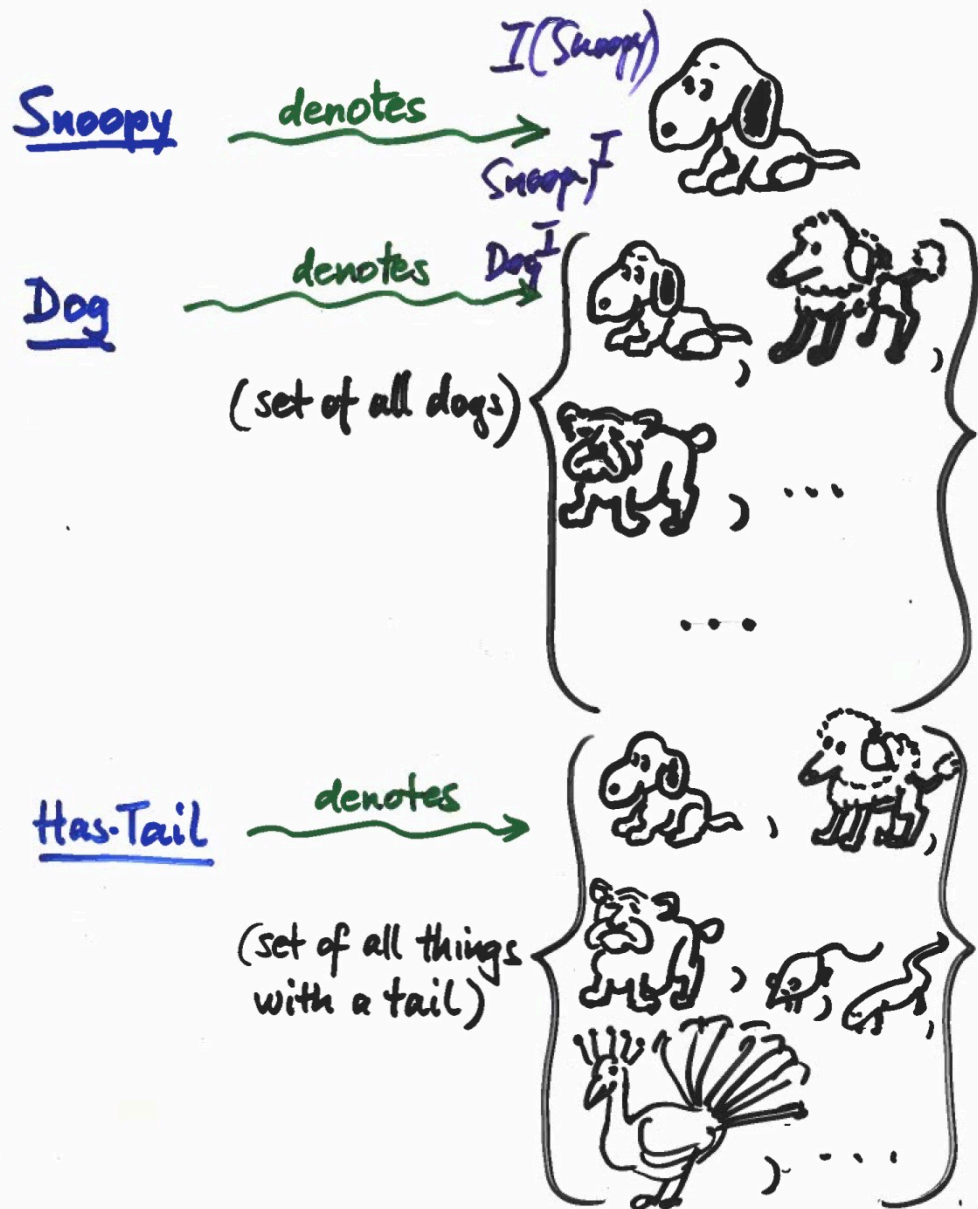 I(Snoopy)
Snoopy denotes
Snoopy^I
Dog denotes Dog^I
(set of all dogs) { , ,
, ...
... }
Has-Tail denotes
(set of all things
with a tail) { , ,
, , ,
, ... }